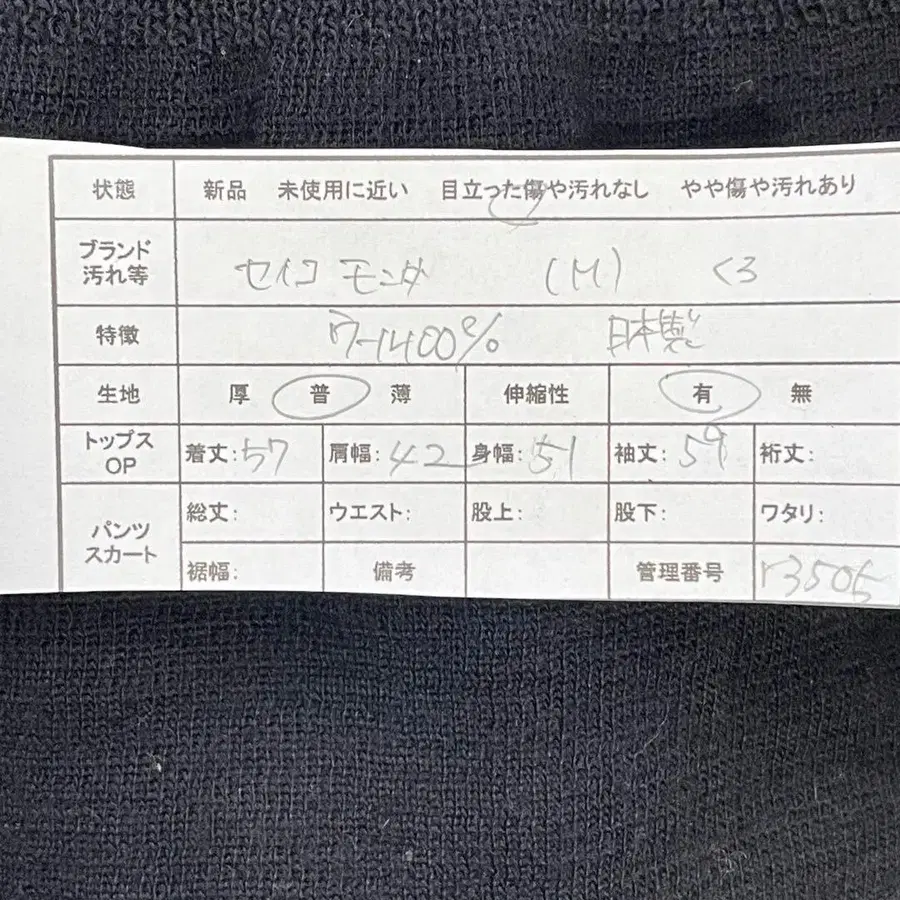 状態 新品 未使用に近い 目立った傷や汚れなし やや傷や汚れあり
ブランド 汚れ等 セイコ モンダ (M) くろ
特徴 ウール100% 日本製
生地 厚 普 薄 伸縮性 有 無
トップス OP 着丈:57 肩幅:42 身幅:51 袖丈:59 裄丈:
パンツ スカート 総丈: ウエスト: 股上: 股下: ワタリ:
裾幅: 備考 管理番号 r3505